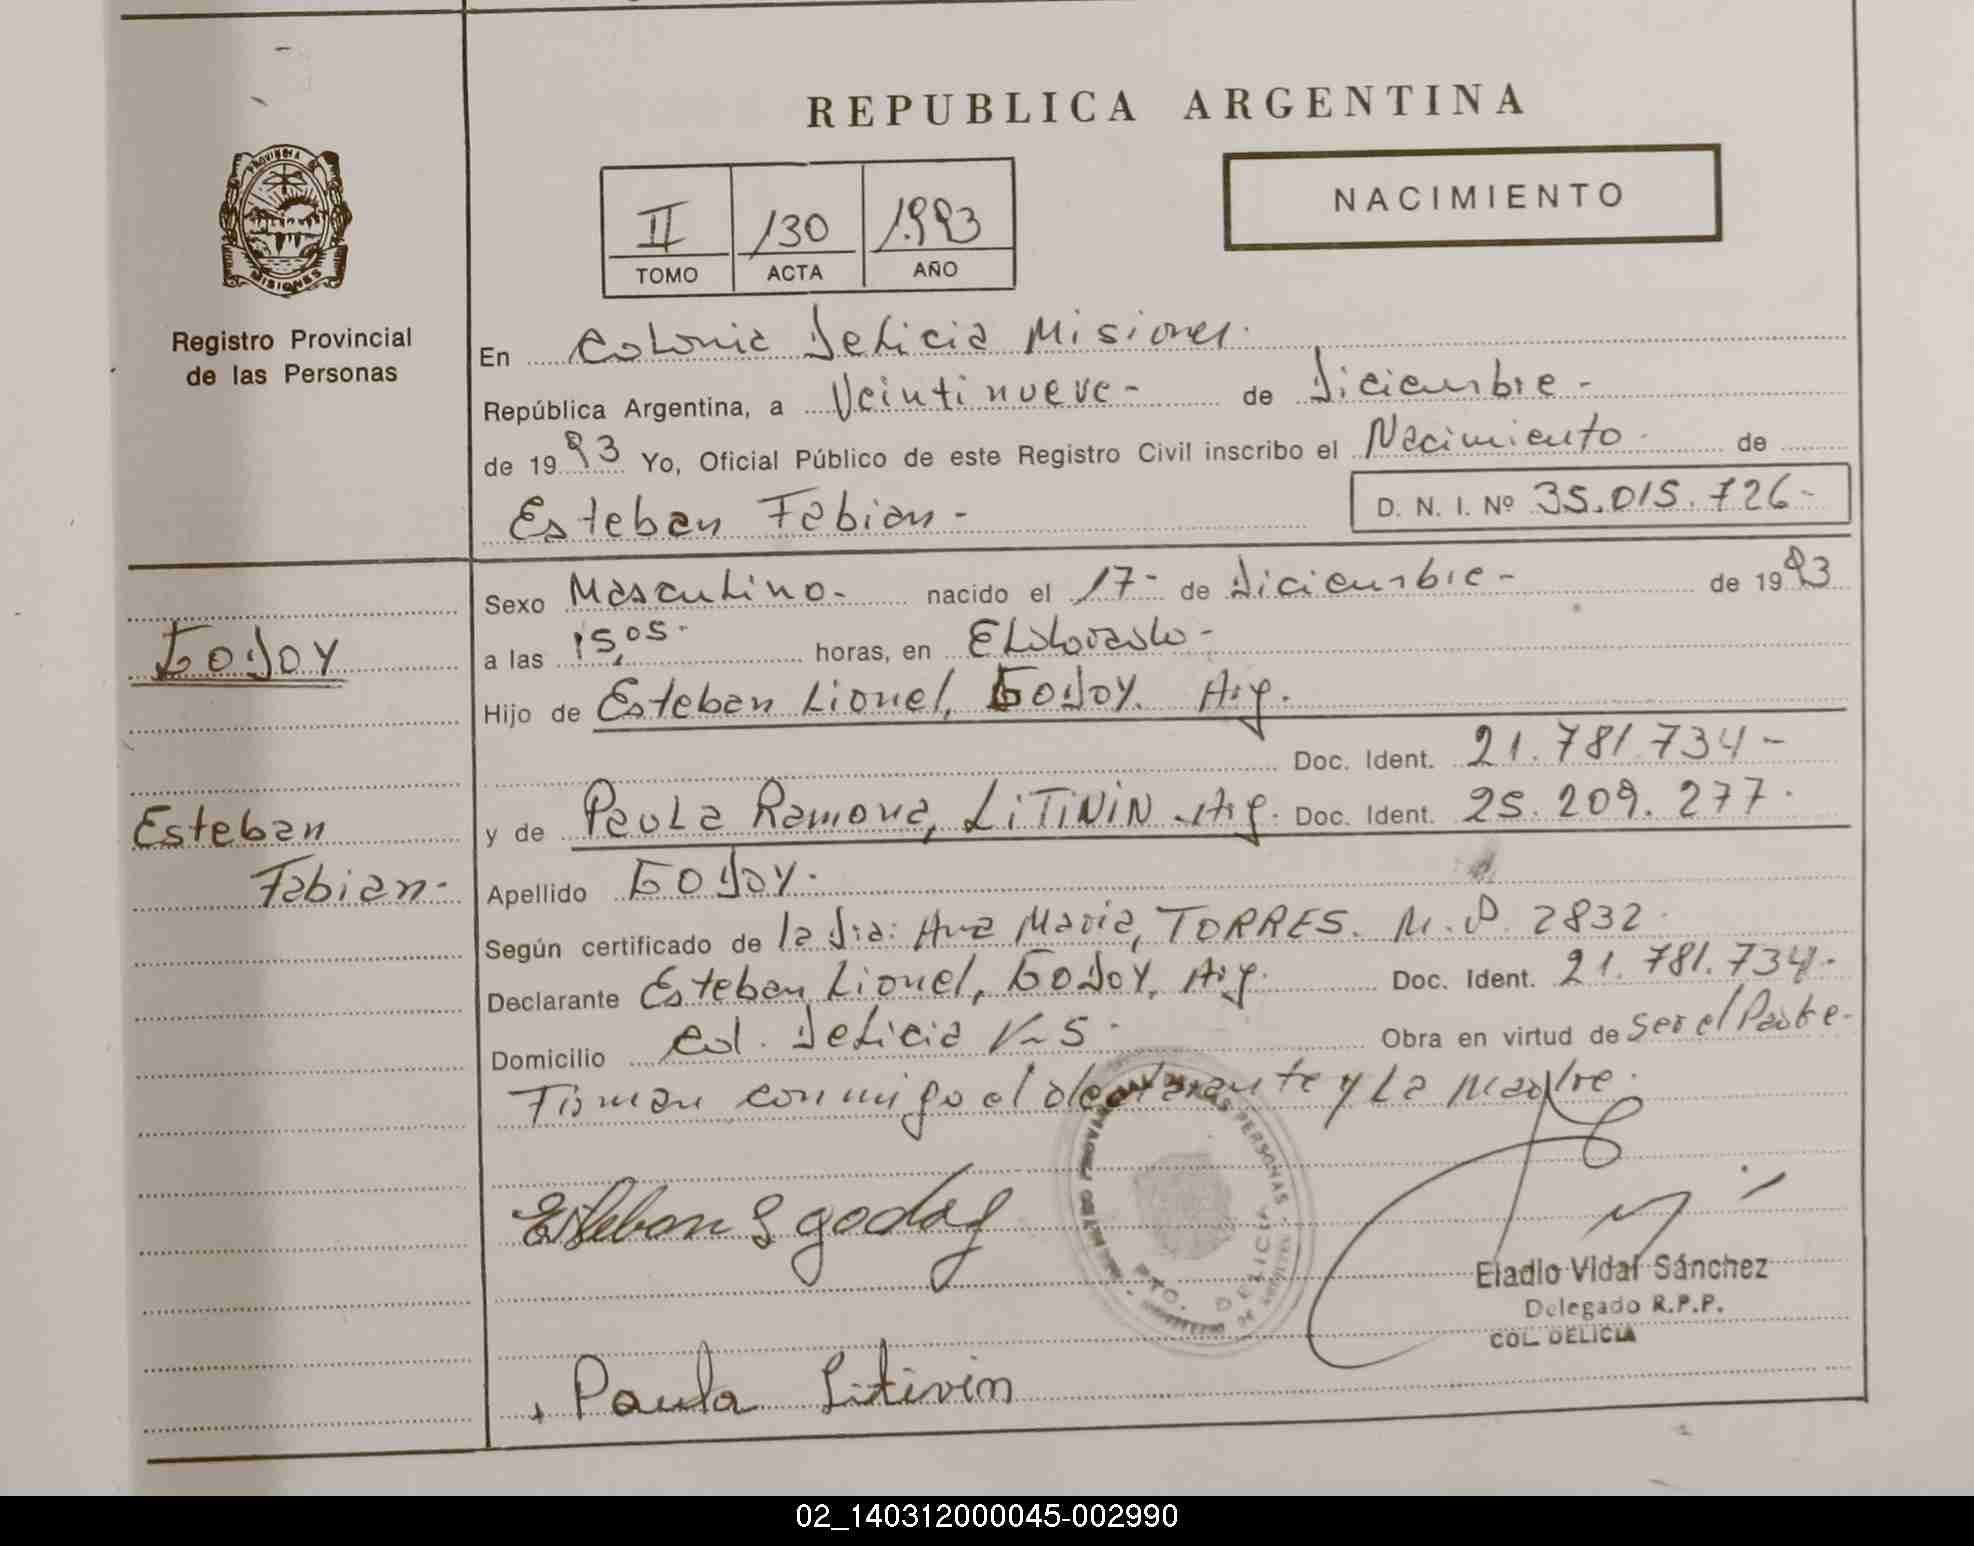 REPUBLICA ARGENTINA
NACIMIENTO
II 130 1.993
TOMO ACTA AÑO
PROVINCIA DE
MISIONES
Registro Provincial
de las Personas
En Colonia Delicia Misiones.
República Argentina, a Veintinueve - de Diciembre -
de 1993 Yo, Oficial Público de este Registro Civil inscribo el Nacimiento. de
Esteban Fabian -
D. N. I. Nº 35.015.726-
Sexo Masculino.- nacido el 17- de Diciembre - de 1993
GODOY
a las 15,05. horas, en Eldorado -
Hijo de Esteban Lionel, GODOY. Arg.
Doc. Ident. 21.781.734-
Esteban
y de Paula Ramona, LiTiNiN. Arg. Doc. Ident. 25.209.277.
Fabian.-
Apellido GODOY.
Según certificado de la Dra: Ana Maria, TORRES. M.P. 2832.
Declarante Esteban Lionel, GODOY, Arg. Doc. Ident. 21.781.734.-
Domicilio Col. Delicia Obra en virtud de ser el Padre-
Firman conmigo el declarante y La Madre.
PERSONAS
PTO. DELICIA
Esteban L godoy
Eladio Vidal Sánchez
Delegado R.P.P.
COL. DELICIA
Paula Litivin
02_140312000045-002990